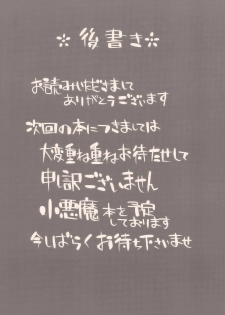 ＊後書き＊
お読みいただきまして
ありがとうございます
次回の本につきましては
大変重ね重ねお待たせして
申訳ございません
小悪魔本を予定
しております
今しばらくお待ち下さいませ